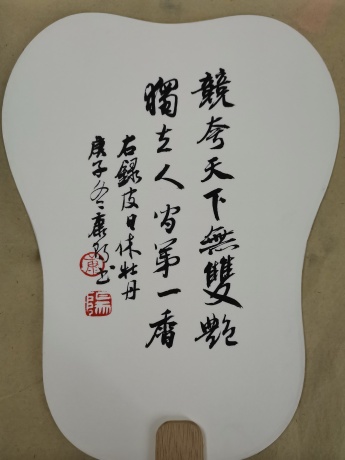 競夸天下無雙艷
獨立人间第一香
右録皮日休牡丹
庚子冬康
书